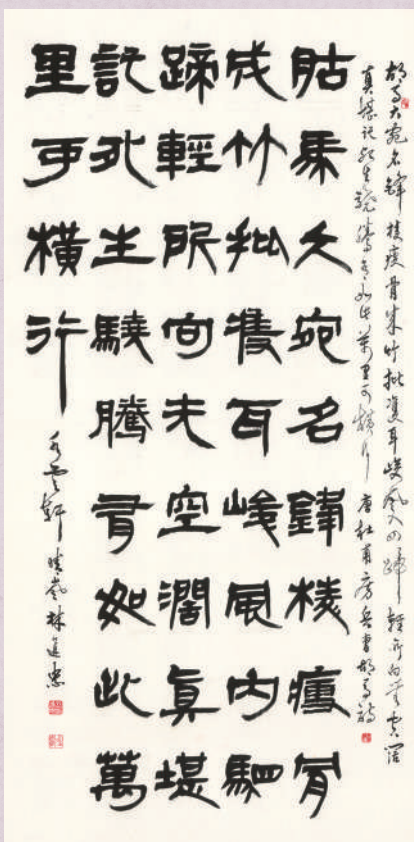 胡馬大宛名鋒棱瘦骨成竹批雙耳峻風入四蹄輕所向無空闊
真堪託死生驍騰有如此萬里可橫行 唐杜甫房兵曹胡馬詩
胡馬大宛名鋒棱瘦骨
成竹批雙耳峻風內駟
蹄輕所向无空闊真堪
託死生驍騰有如此萬
里可橫行
水雲軒 晴嵐 林進忠